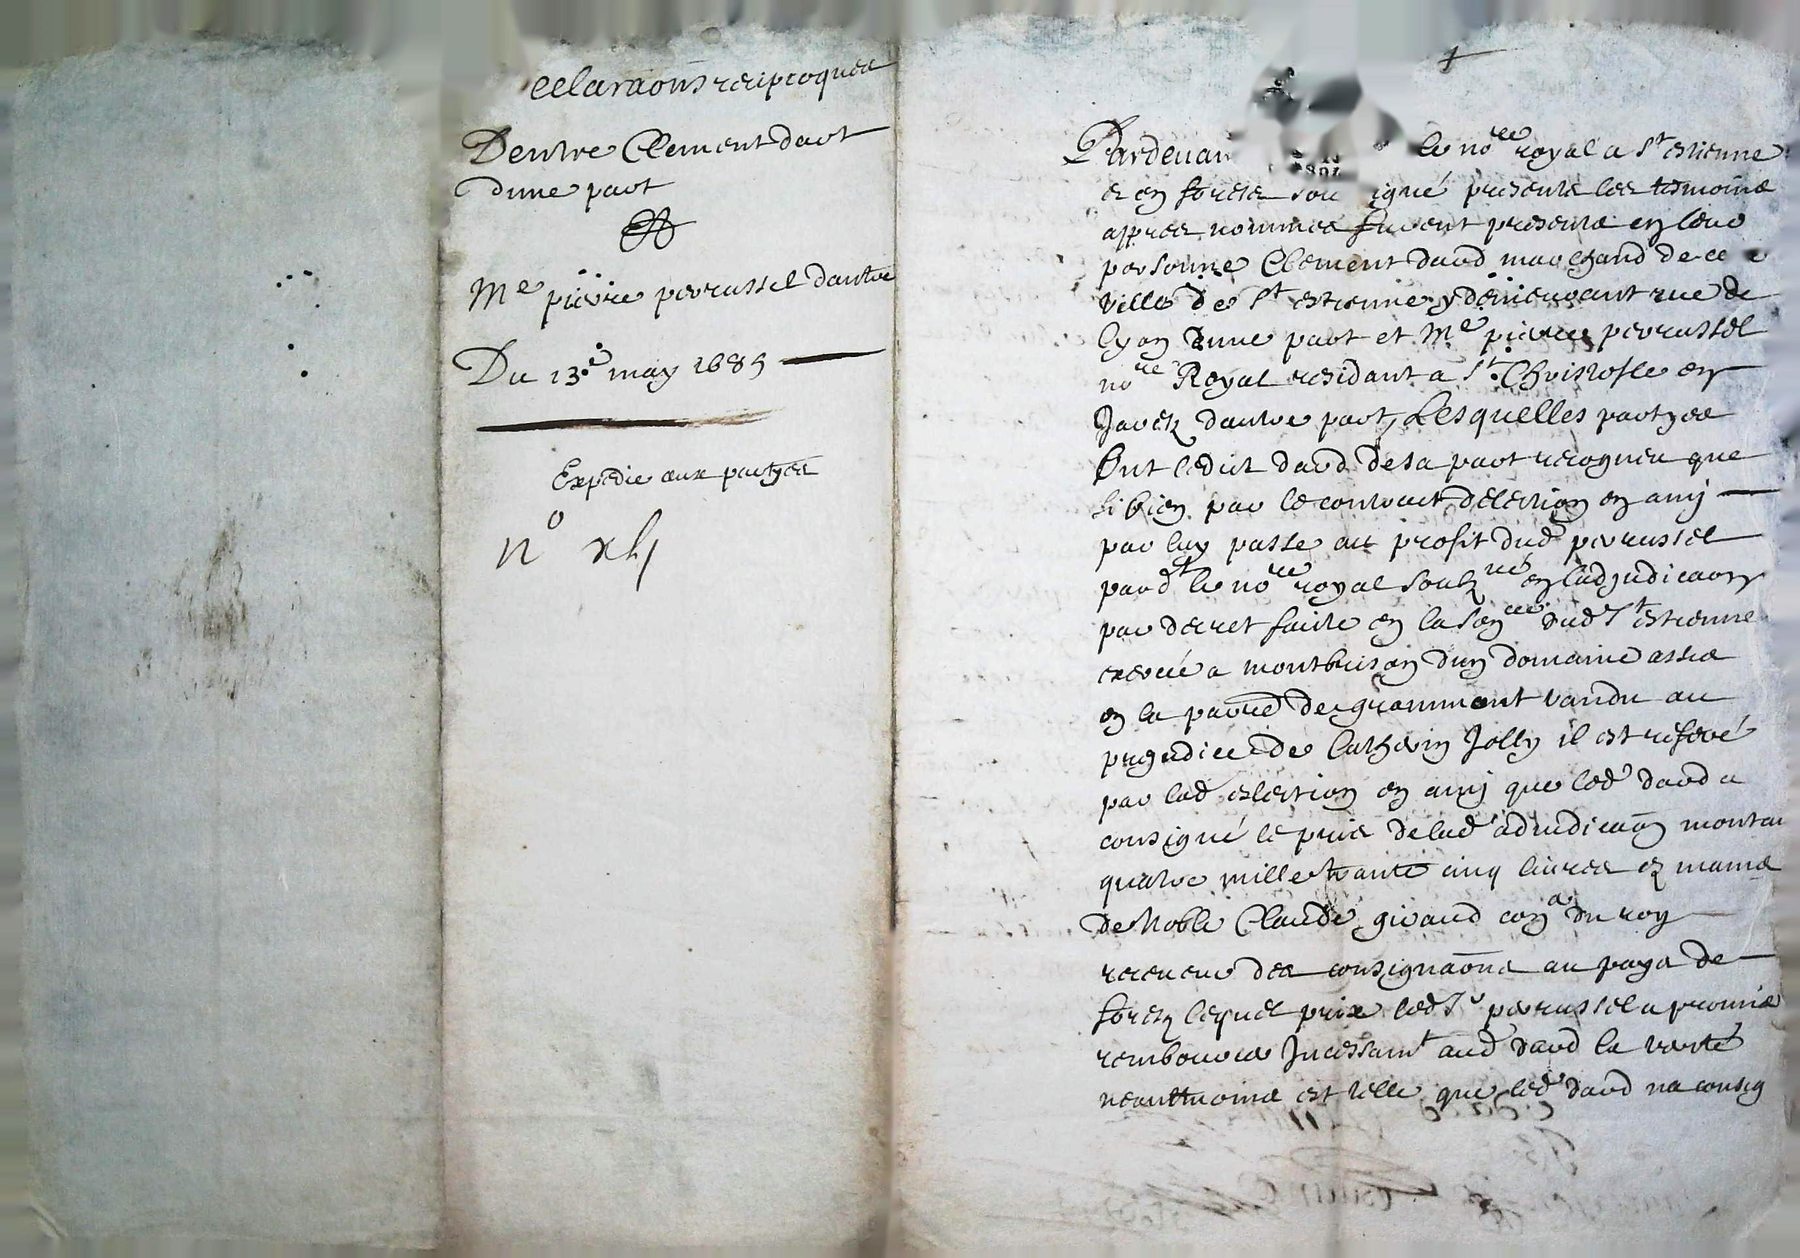 declaraōns reciproques
Dentre Clement dard
dune part
Mᵉ pierre perrussel dautre
Du 13ᵉ may 1685
Expedie aux partyes
nº xlj
Pardevant le noʳᵉ royal a Sᵗ estienne
e en forestz soubsigné presents les tesmoins
appres nommes furent presents en leur
personne Clement dard marchand de ce
ville de Sᵗ estienne y demeurant rue de
lyon dune part et Mᵉ pierre perrussel
noʳᵉ Royal residant a Sᵗ Christofle en
Jarestz dautre part, Lesquelles partyes
Ont ledit dard de sa part recogneu que
si bien par le contract delection en amy
par luy passe au profit dud perrussel
pard le noʳᵉ royal soubzⁿᵉ en ladjudicaon
par decret faite en la dud Sᵗ estienne
a montbrison dun domaine assis
en la parre de grammont vandu au
prejudice de Jolly il est referé
par lad eslection en amy que led dard a
consigné le prix de lad adjudicaōn montan
quatre mille trante cinq livres ez mains
De Noble Claude giraud conᵉʳ du roy
receveur des consignaōns au pays de
forestz lequel prix led Sʳ perrussel a promis
rembourcer Incessamᵗ aud dard la verité
neantmoins est telle que led dard na consig